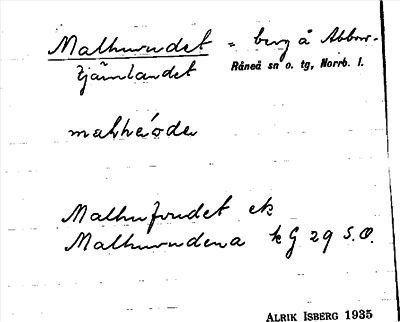 Malhuvudet = berg å Abborr-
tjärnlandet Råneå sn o. tg, Norrb. l.
Malhufvudet ek
Malhuvudena k G 29 S.O.
ALRIK ISBERG 1935